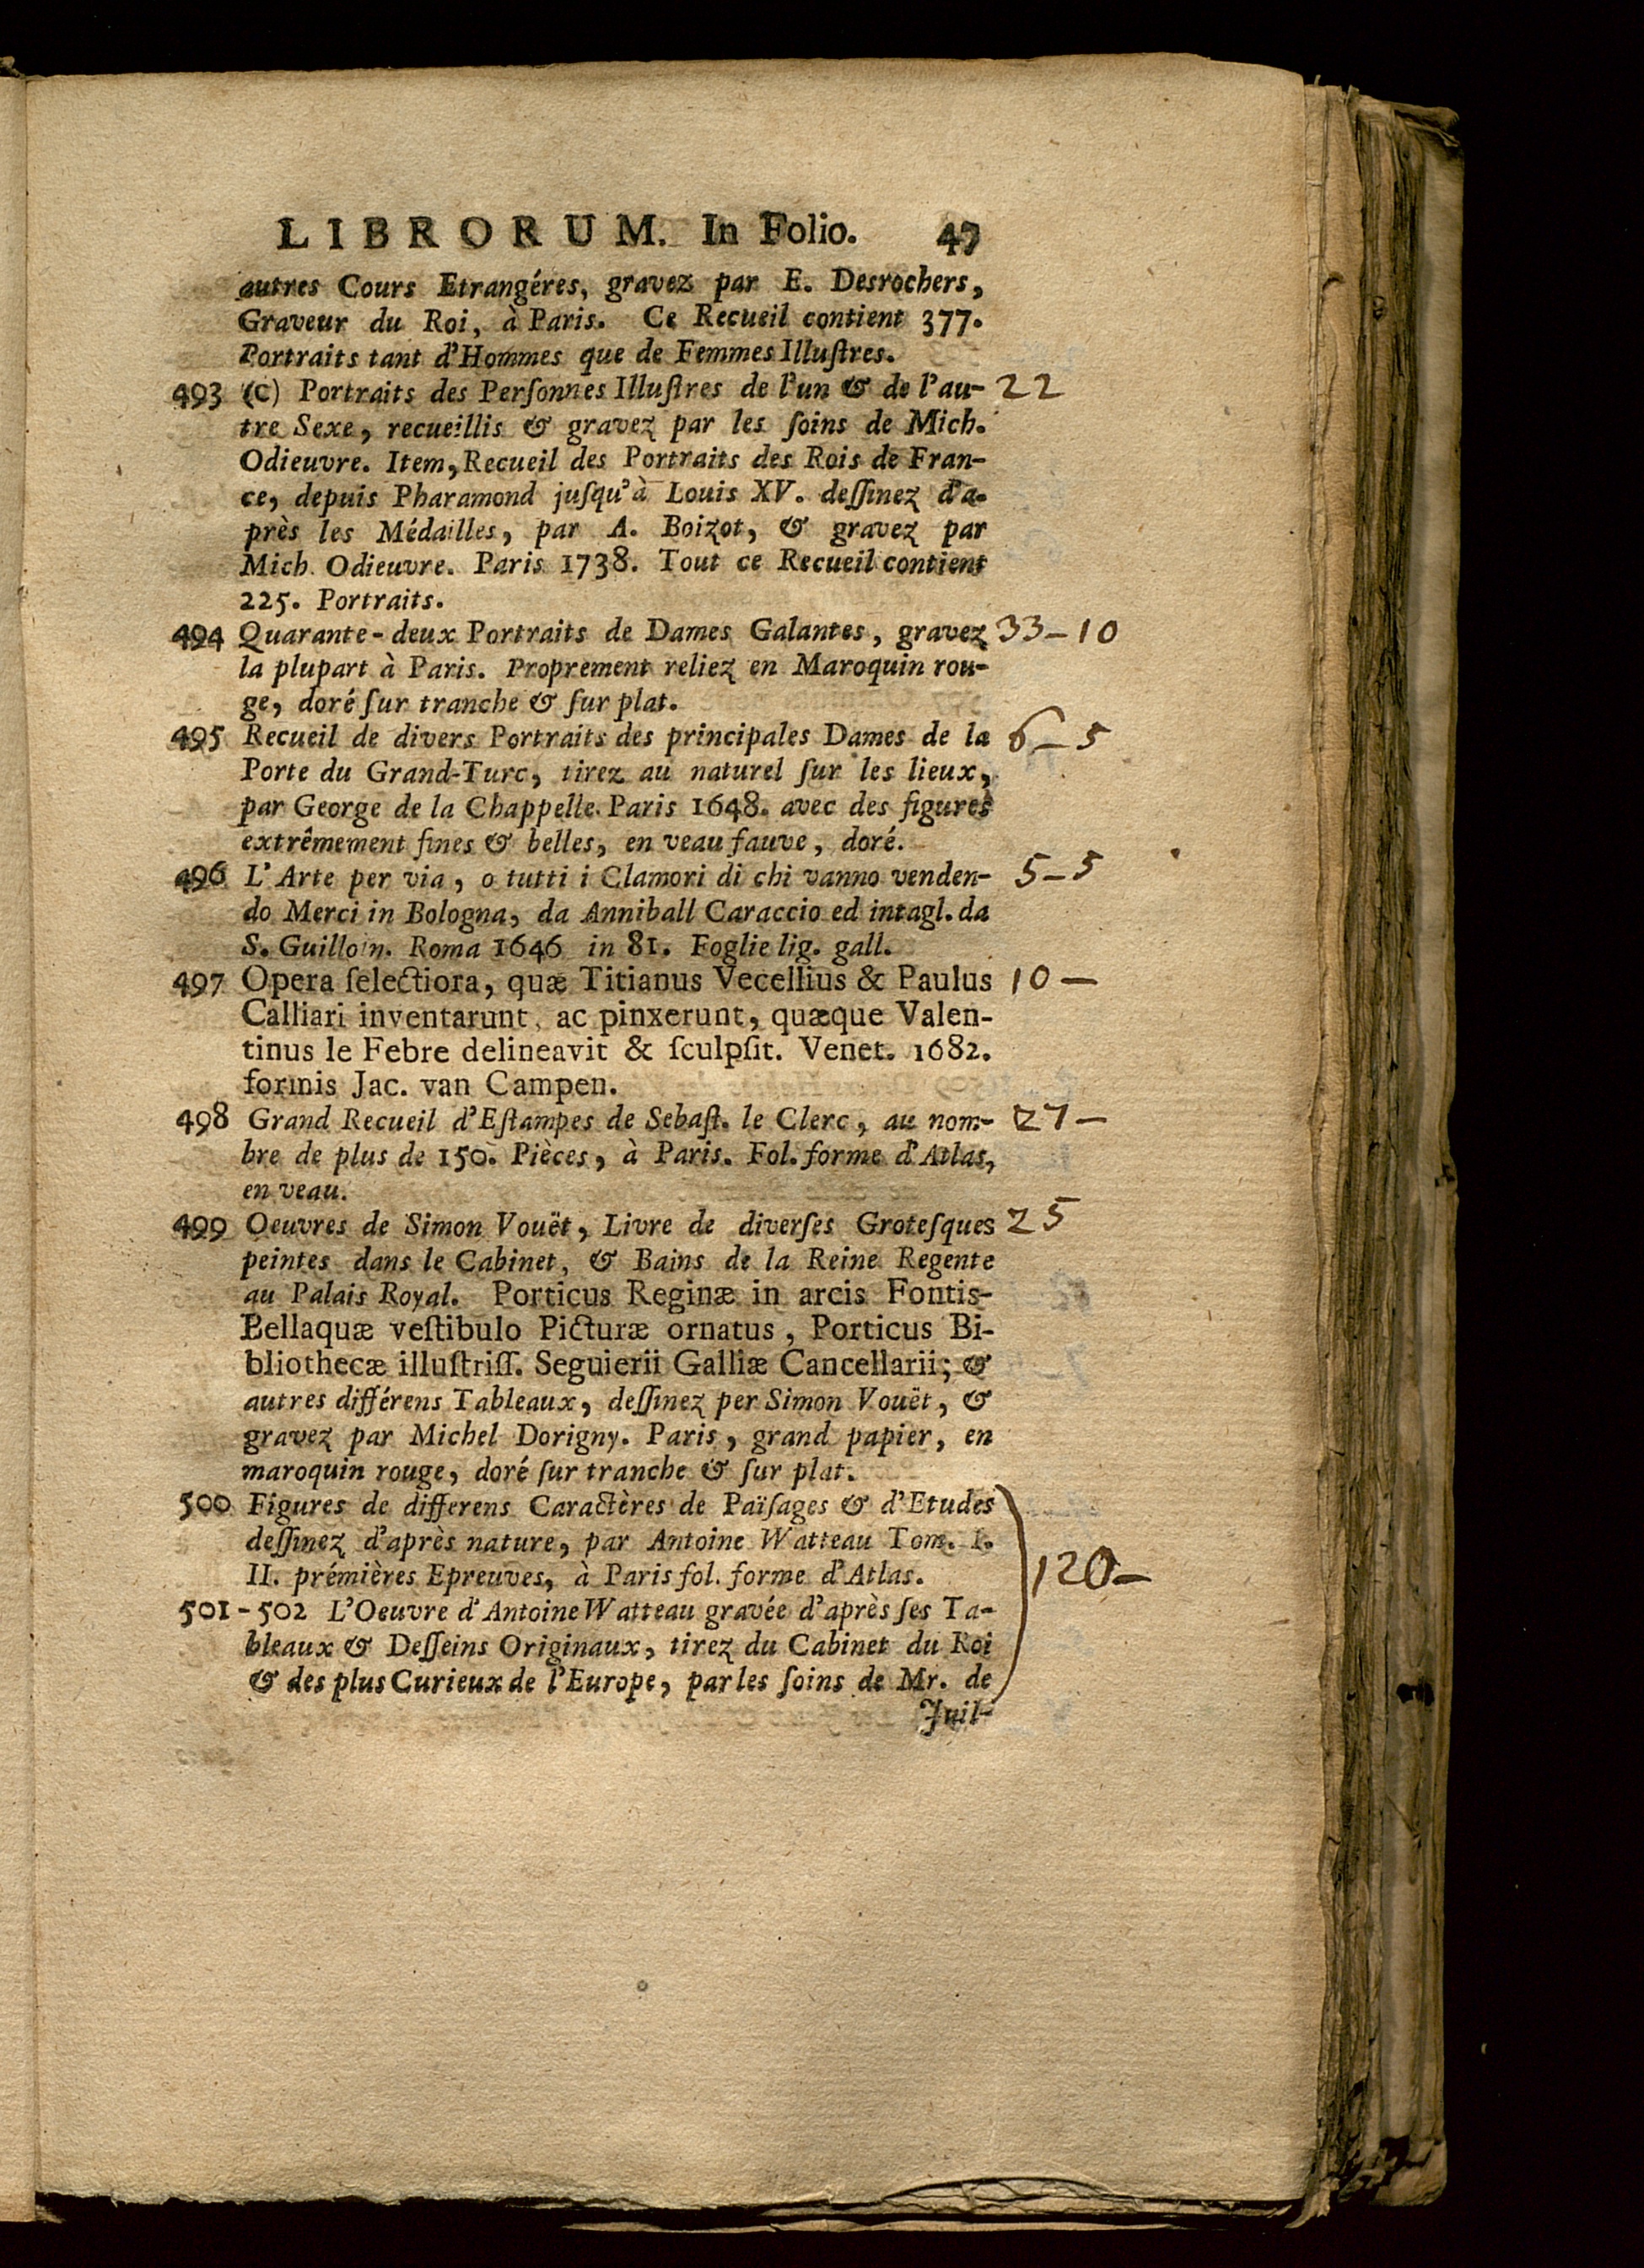 LIBRORUM. In Folio. 47
autres Cours Etrangéres, gravez par E. Desrochers,
Graveur du Roi, à Paris. Ce Recueil contient 377.
Portraits tant d'Hommes que de Femmes Illuſtres.
493 (C) Portraits des Perſonnes Illuſtres de l'un & de l'au- 22
tre Sexe, recueillis & gravez par les ſoins de Mich.
Odieuvre. Item, Recueil des Portraits des Rois de Fran-
ce, depuis Pharamond juſqu'à Louis XV. deſſinez d'a-
près les Médailles, par A. Boizot, & gravez par
Mich. Odieuvre. Paris 1738. Tout ce Recueil contient
225. Portraits.
494 Quarante-deux Portraits de Dames Galantes, gravez 33-10
la plupart à Paris. Proprement reliez en Maroquin rou-
ge, doré ſur tranche & ſur plat.
495 Recueil de divers Portraits des principales Dames de la 6-5
Porte du Grand-Turc, tirez au naturel ſur les lieux,
par George de la Chappelle. Paris 1648. avec des figures
extrêmement fines & belles, en veau fauve, doré.
496 L'Arte per via, o tutti i Clamori di chi vanno venden- 5-5
do Merci in Bologna, da Anniball Caraccio ed intagl. da
S. Guilloin. Roma 1646 in 81. Foglie lig. gall.
497 Opera ſelectiora, quæ Titianus Vecellius & Paulus 10-
Calliari inventarunt, ac pinxerunt, quæque Valen-
tinus le Febre delineavit & ſculpſit. Venet. 1682.
formis Jac. van Campen.
498 Grand Recueil d'Eſtampes de Sebaſt. le Clerc, au nom- 27-
bre de plus de 150. Pièces, à Paris. Fol. forme d'Atlas,
en veau.
499 Oeuvres de Simon Vouët, Livre de diverſes Groteſques 25
peintes dans le Cabinet, & Bains de la Reine Regente
au Palais Royal. Porticus Reginæ in arcis Fontis-
Bellaquæ veſtibulo Picturæ ornatus, Porticus Bi-
bliothecæ illuſtriſſ. Seguierii Galliæ Cancellarii; &
autres différens Tableaux, deſſinez per Simon Vouët, &
gravez par Michel Dorigny. Paris, grand papier, en
maroquin rouge, doré ſur tranche & ſur plat.
500 Figures de differens Caractères de Païſages & d'Etudes
deſſinez d'après nature, par Antoine Watteau Tom. I.
II. prémières Epreuves, à Paris fol. forme d'Atlas. 120-
501-502 L'Oeuvre d'Antoine Watteau gravée d'après ſes Ta-
bleaux & Deſſeins Originaux, tirez du Cabinet du Roi
& des plus Curieux de l'Europe, par les ſoins de Mr. de
Juil-